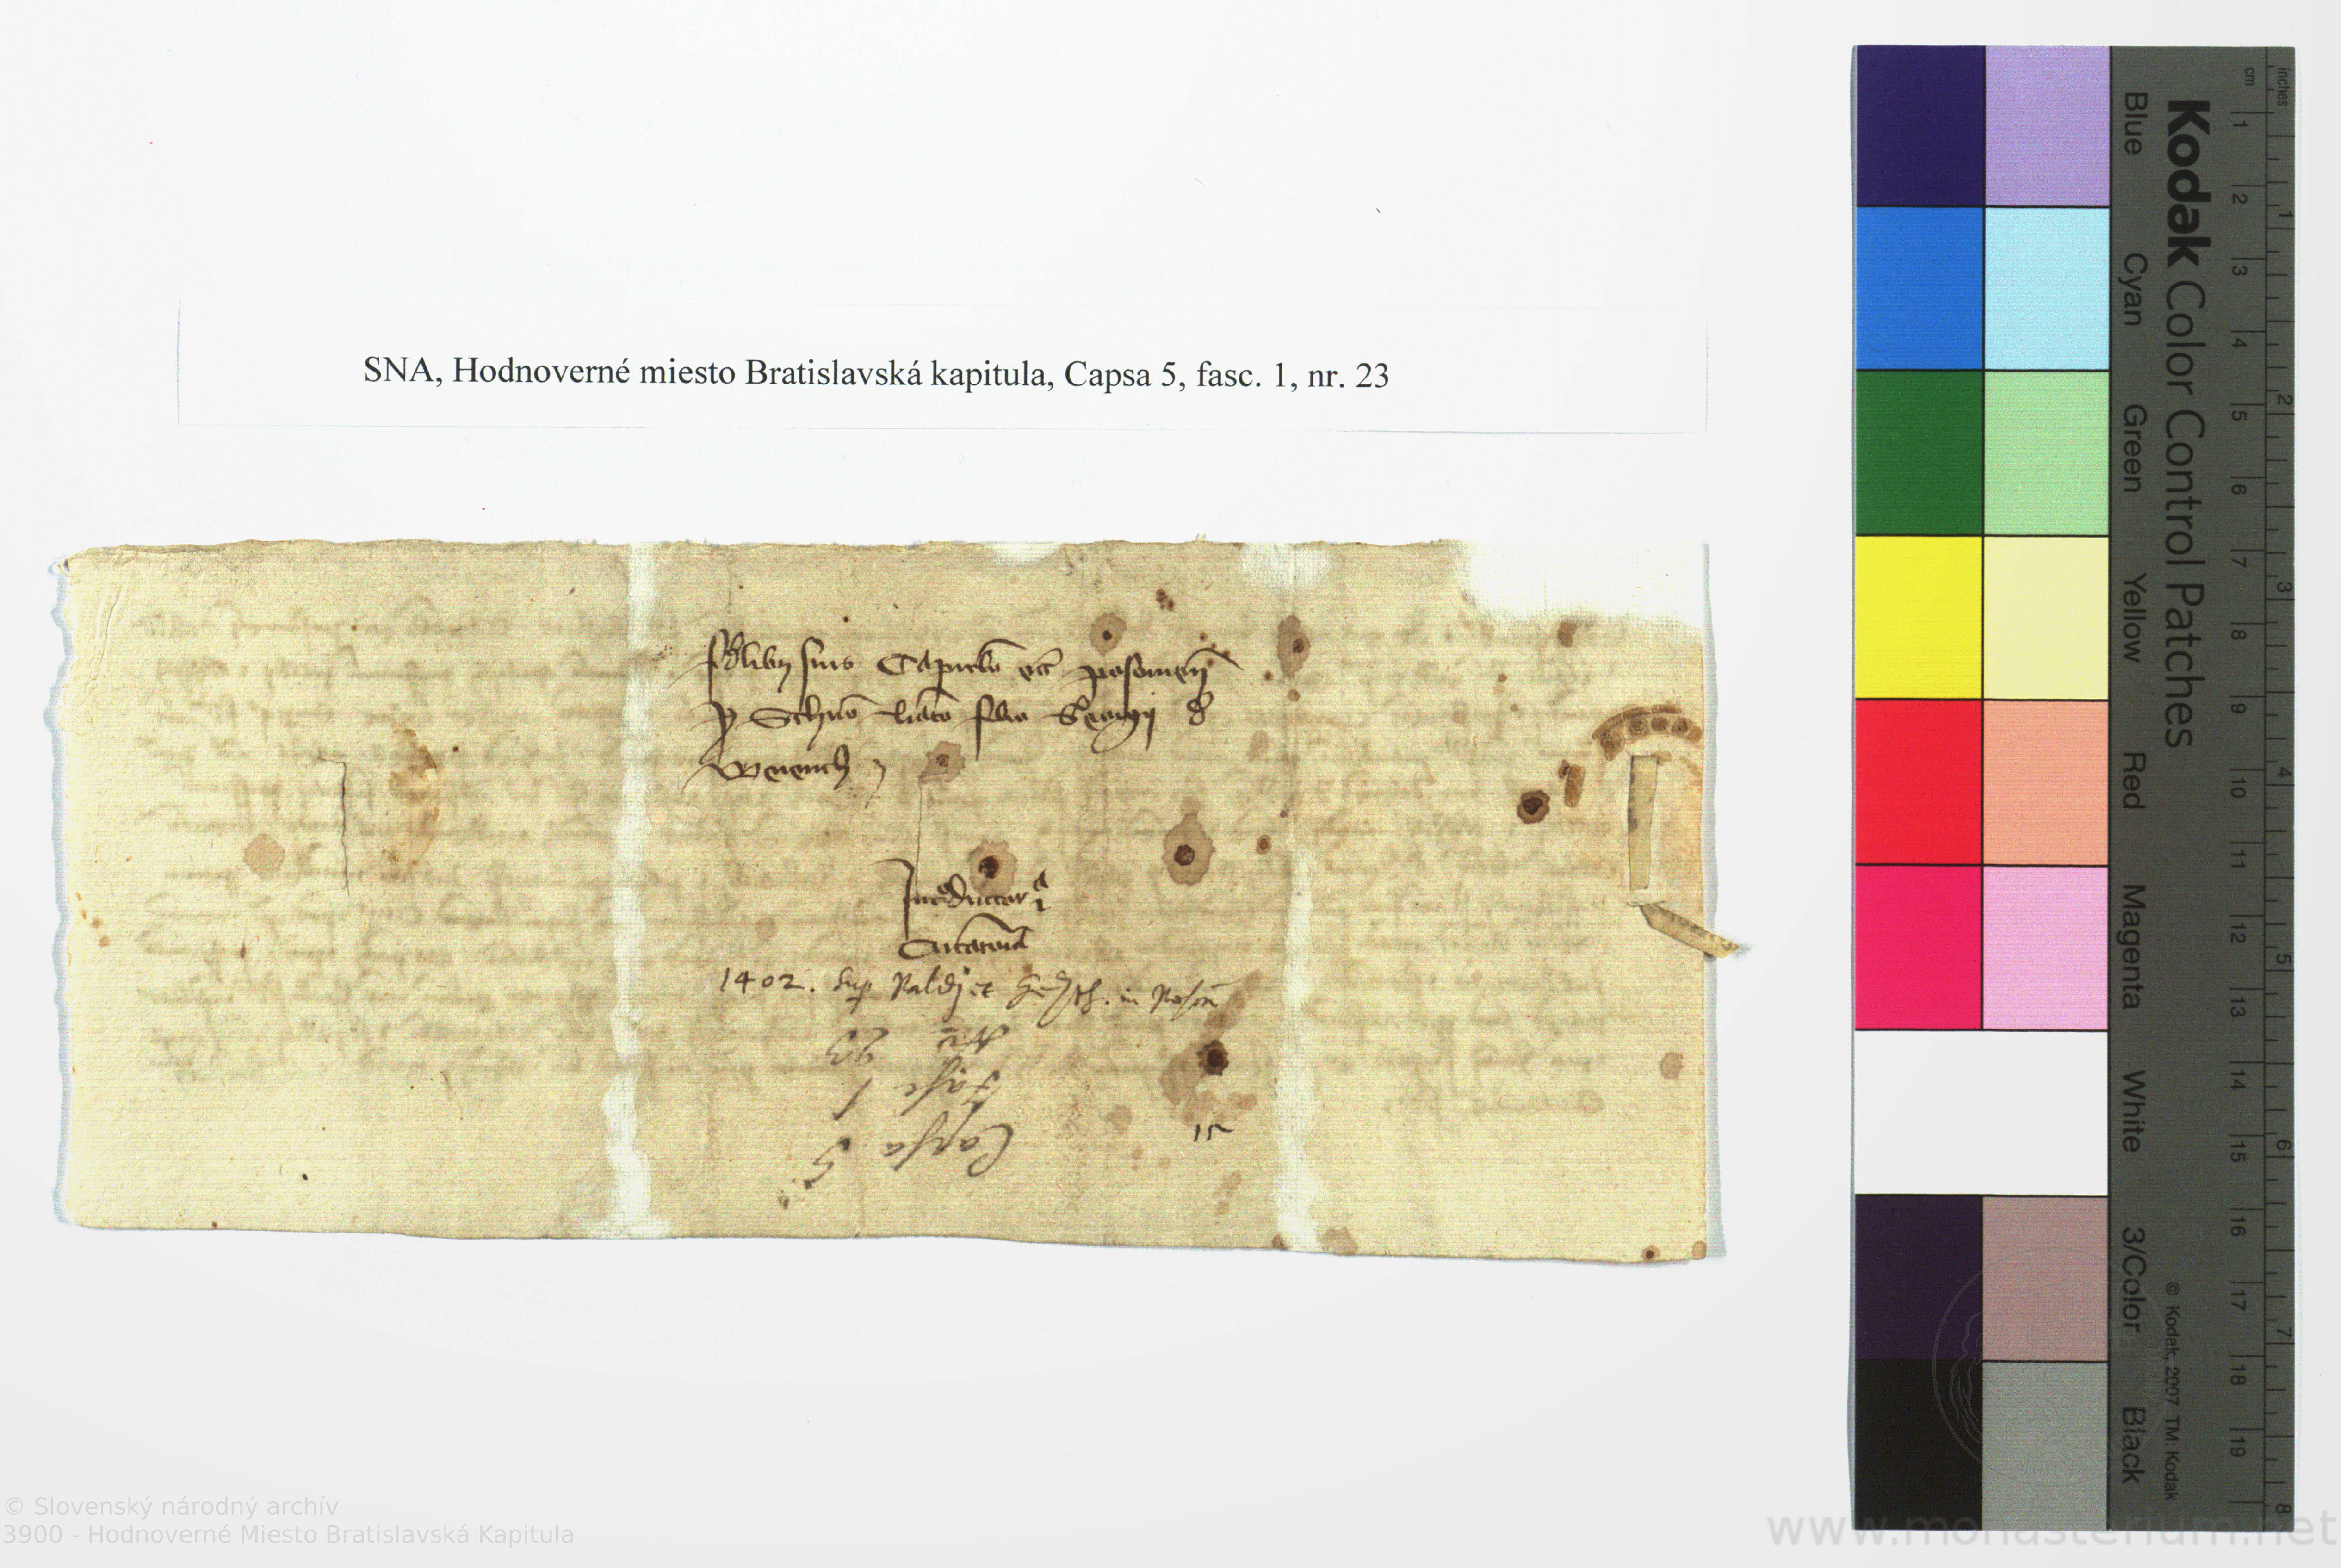 SNA, Hodnoverné miesto Bratislavská kapitula, Capsa 5, fasc. 1, nr. 23
suis Capitulo ecc posonien
filio Georgij d
Introductoria
1402. Sup Paldj et in Poson
Nro 23
Fasc 1
Capsa 5
15
Kodak Color Control Patches
Blue Cyan Green Yellow Red Magenta White 3/Color Black
inches 1 2 3 4 5 6 7 8
cm 1 2 3 4 5 6 7 8 9 10 11 12 13 14 15 16 17 18 19
© Kodak, 2007 TM: Kodak
© Slovenský národný archív
3900 - Hodnoverné Miesto Bratislavská Kapitula
www.monasterium.net